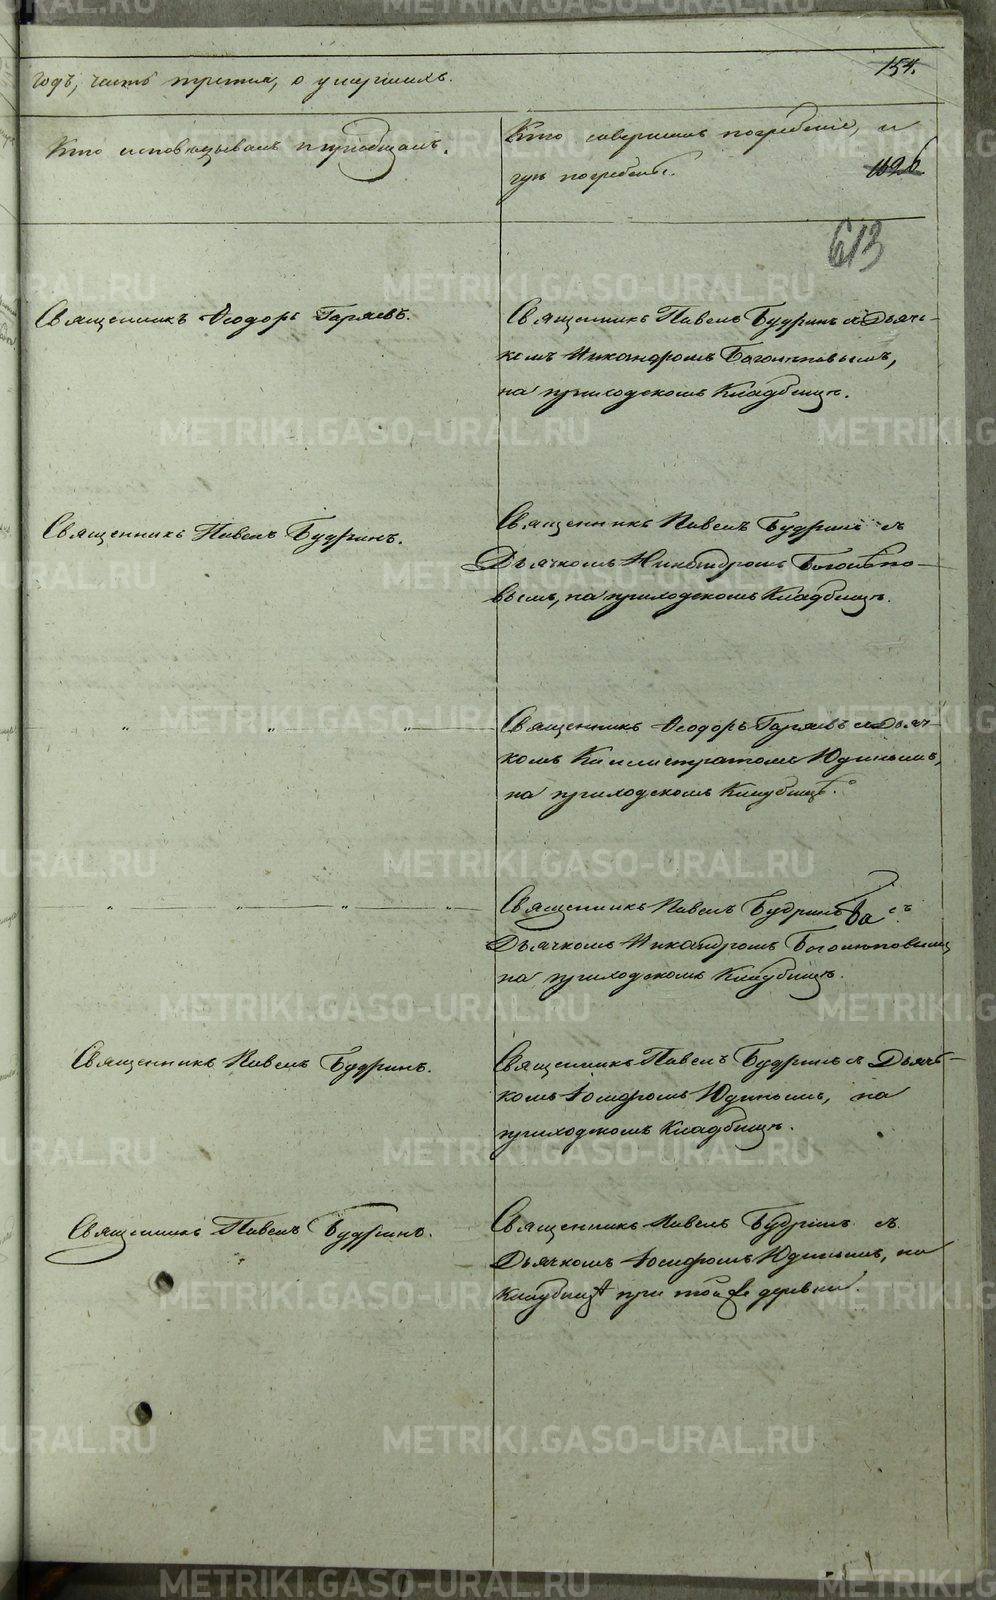 годъ, часть третья, о умершихъ.
154.
Кто исповѣдывалъ и приобщалъ.
Кто совершалъ погребеніе, и
гдѣ погребены.
613
Священникъ Ѳеодоръ Гаряевъ.
Священникъ Павелъ Будринъ съ Дьяч-
комъ Никандромъ Боголѣповымъ,
на приходскомъ Кладбищѣ.
Священникъ Павелъ Будринъ.
Священникъ Павелъ Будринъ съ
Дьячкомъ Никандромъ Боголѣпо-
вымъ, на приходскомъ Кладбищѣ.
" " "
Священникъ Ѳеодоръ Гаряевъ съ Дьяч-
комъ Каллистратомъ Юдинымъ,
на приходскомъ Кладбищѣ.
" " " "
Священникъ Павелъ Будринъ съ
Дьячкомъ Никандромъ Боголѣповымъ,
на приходскомъ Кладбищѣ.
Священникъ Павелъ Будринъ.
Священникъ Павелъ Будринъ съ Дьяч-
комъ Іосифомъ Юдинымъ, на
приходскомъ Кладбищѣ.
Священникъ Павелъ Будринъ.
Священникъ Павелъ Будринъ съ
Дьячкомъ Іосифомъ Юдинымъ, на
Кладбищѣ при той же деревни.
METRIKI.GASO-URAL.RU